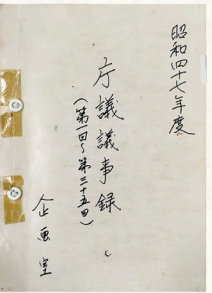 昭和四十七年度
庁議議事録
(第一回~第三十五回)
企画室